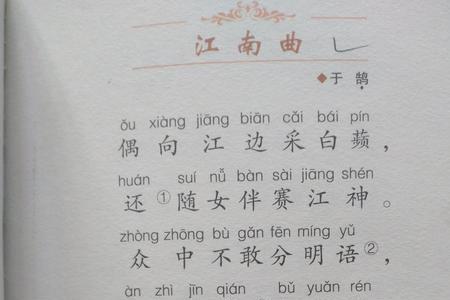 江南曲
◆于鹄
ǒu xiàng jiāng biān cǎi bái pín
偶向江边采白蘋，
huán suí nǚ bàn sài jiāng shén
还①随女伴赛江神。
zhòng zhōng bù gǎn fēn míng yǔ
众中不敢分明语②，
àn zhì jīn qián bǔ yuǎn rén